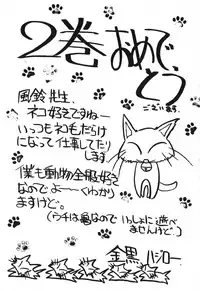 2巻おめで
とう
ございます。
風鈴先生、
ネコ好きですねー
いっつもネコもだらけ
になって仕事してたり
します。
僕も動物全般好き
なのでよーくわかり
ますけど。
(ウチは鳥なのでいっしょに遊べ
ませんけど。)
金黒